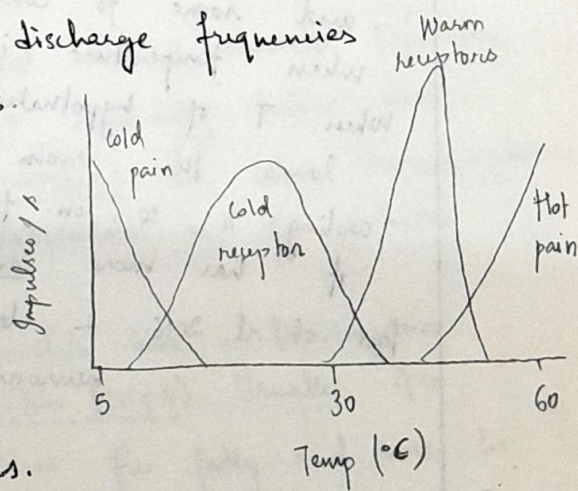 discharge frequencies
Warm
receptors
cold
pain
cold
receptor
Hot
pain
Impulses/s
5 30 60
Temp (°C)
s.